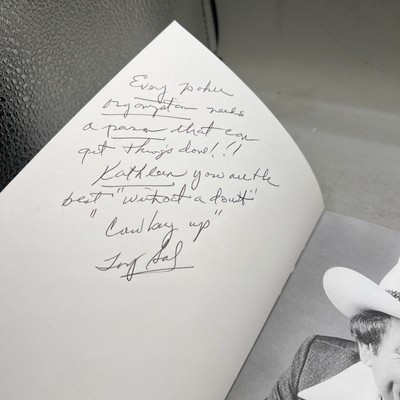 Every poker
organization needs
a person that can
get things done!!!
Kathleen you are the
best "without a dout"
"Cowboy up"